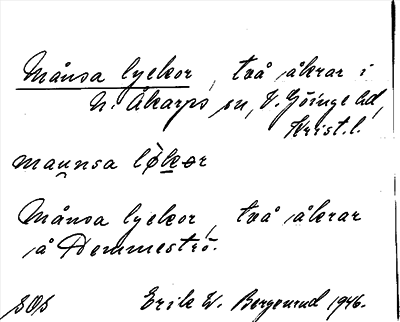 Månsa lyckor, två åkrar i
N. Åkarps sn, V. Göinge hd,
Krist. l.
maunsa løkər
Månsa lyckor, två åkrar
på Demmeströ.
SOS Erik W. Bergenrud 1946.